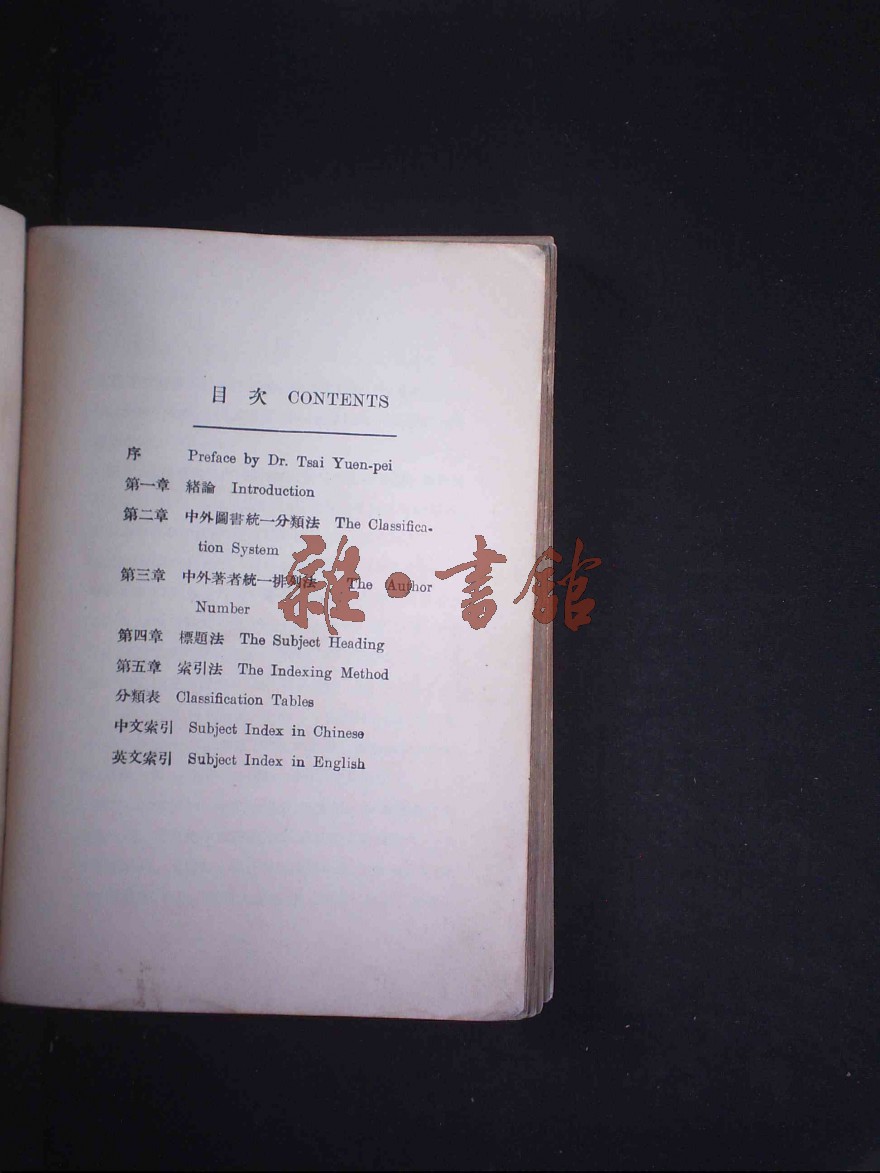 目 次 CONTENTS
序 Preface by Dr. Tsai Yuen-pei
第一章 緒論 Introduction
第二章 中外圖書統一分類法 The Classifica-
tion System
第三章 中外著者統一排列法 The Author
Number
第四章 標題法 The Subject Heading
第五章 索引法 The Indexing Method
分類表 Classification Tables
中文索引 Subject Index in Chinese
英文索引 Subject Index in English
雜·書館